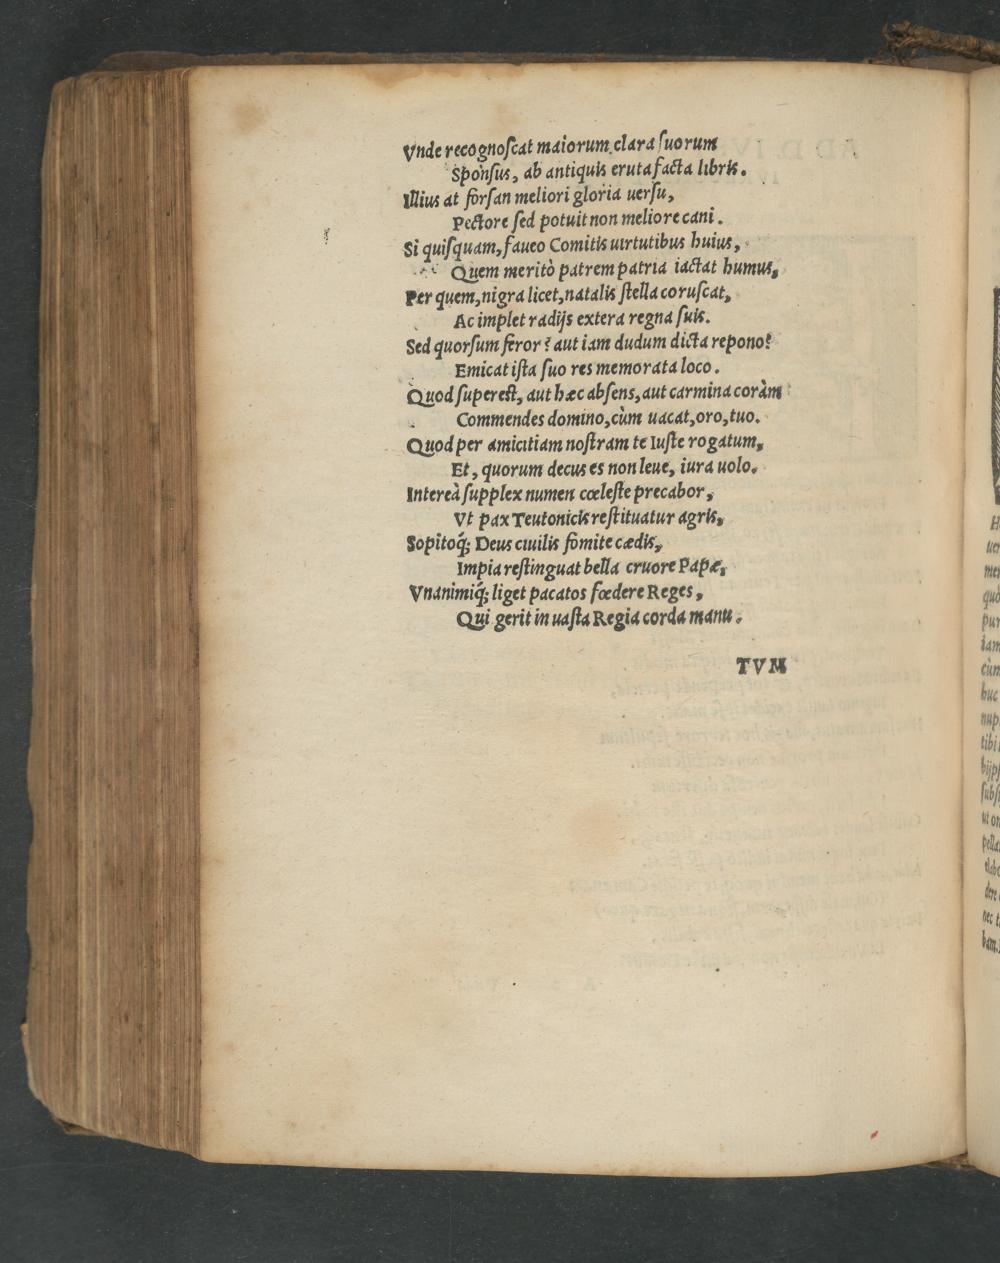 Vnde recognoſcat maiorum clara ſuorum
Sponſus, ab antiquis eruta facta libris.
Illius at forſan meliori gloria uerſu,
Pectore ſed potuit non meliore cani.
Si quiſquam, faueo Comitis uirtutibus huius,
Quem meritò patrem patria iactat humus,
Per quem, nigra licet, natalis ſtella coruſcat,
Ac implet radijs extera regna ſuis.
Sed quorſum feror? aut iam dudum dicta repono?
Emicat iſta ſuo res memorata loco.
Quod ſupereſt, aut hæc abſens, aut carmina coràm
Commendes domino, cùm uacat, oro, tuo.
Quod per amicitiam noſtram te Iuſte rogatum,
Et, quorum decus es non leue, iura uolo.
Intereà ſupplex numen cœleſte precabor,
Vt pax Teutonicis reſtituatur agris,
Sopitoq́; Deus ciuilis fomite cædis,
Impia reſtinguat bella cruore Papæ,
Vnanimiq́; liget pacatos fœdere Reges,
Qui gerit in uaſta Regia corda manu.
TVM